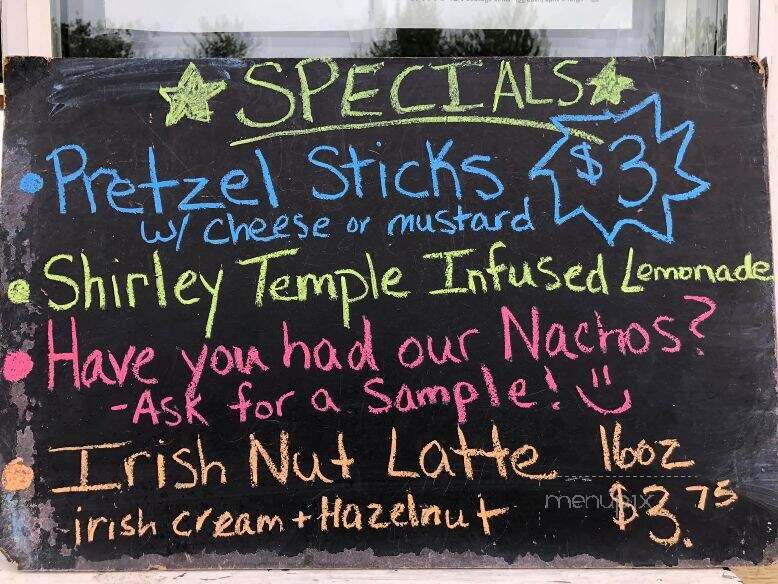 SPECIALS
Pretzel Sticks $3
w/ cheese or mustard
Shirley Temple Infused Lemonade
Have you had our Nachos?
-Ask for a Sample!
Irish Nut Latte 16oz
irish cream + Hazelnut $3.75
menupix